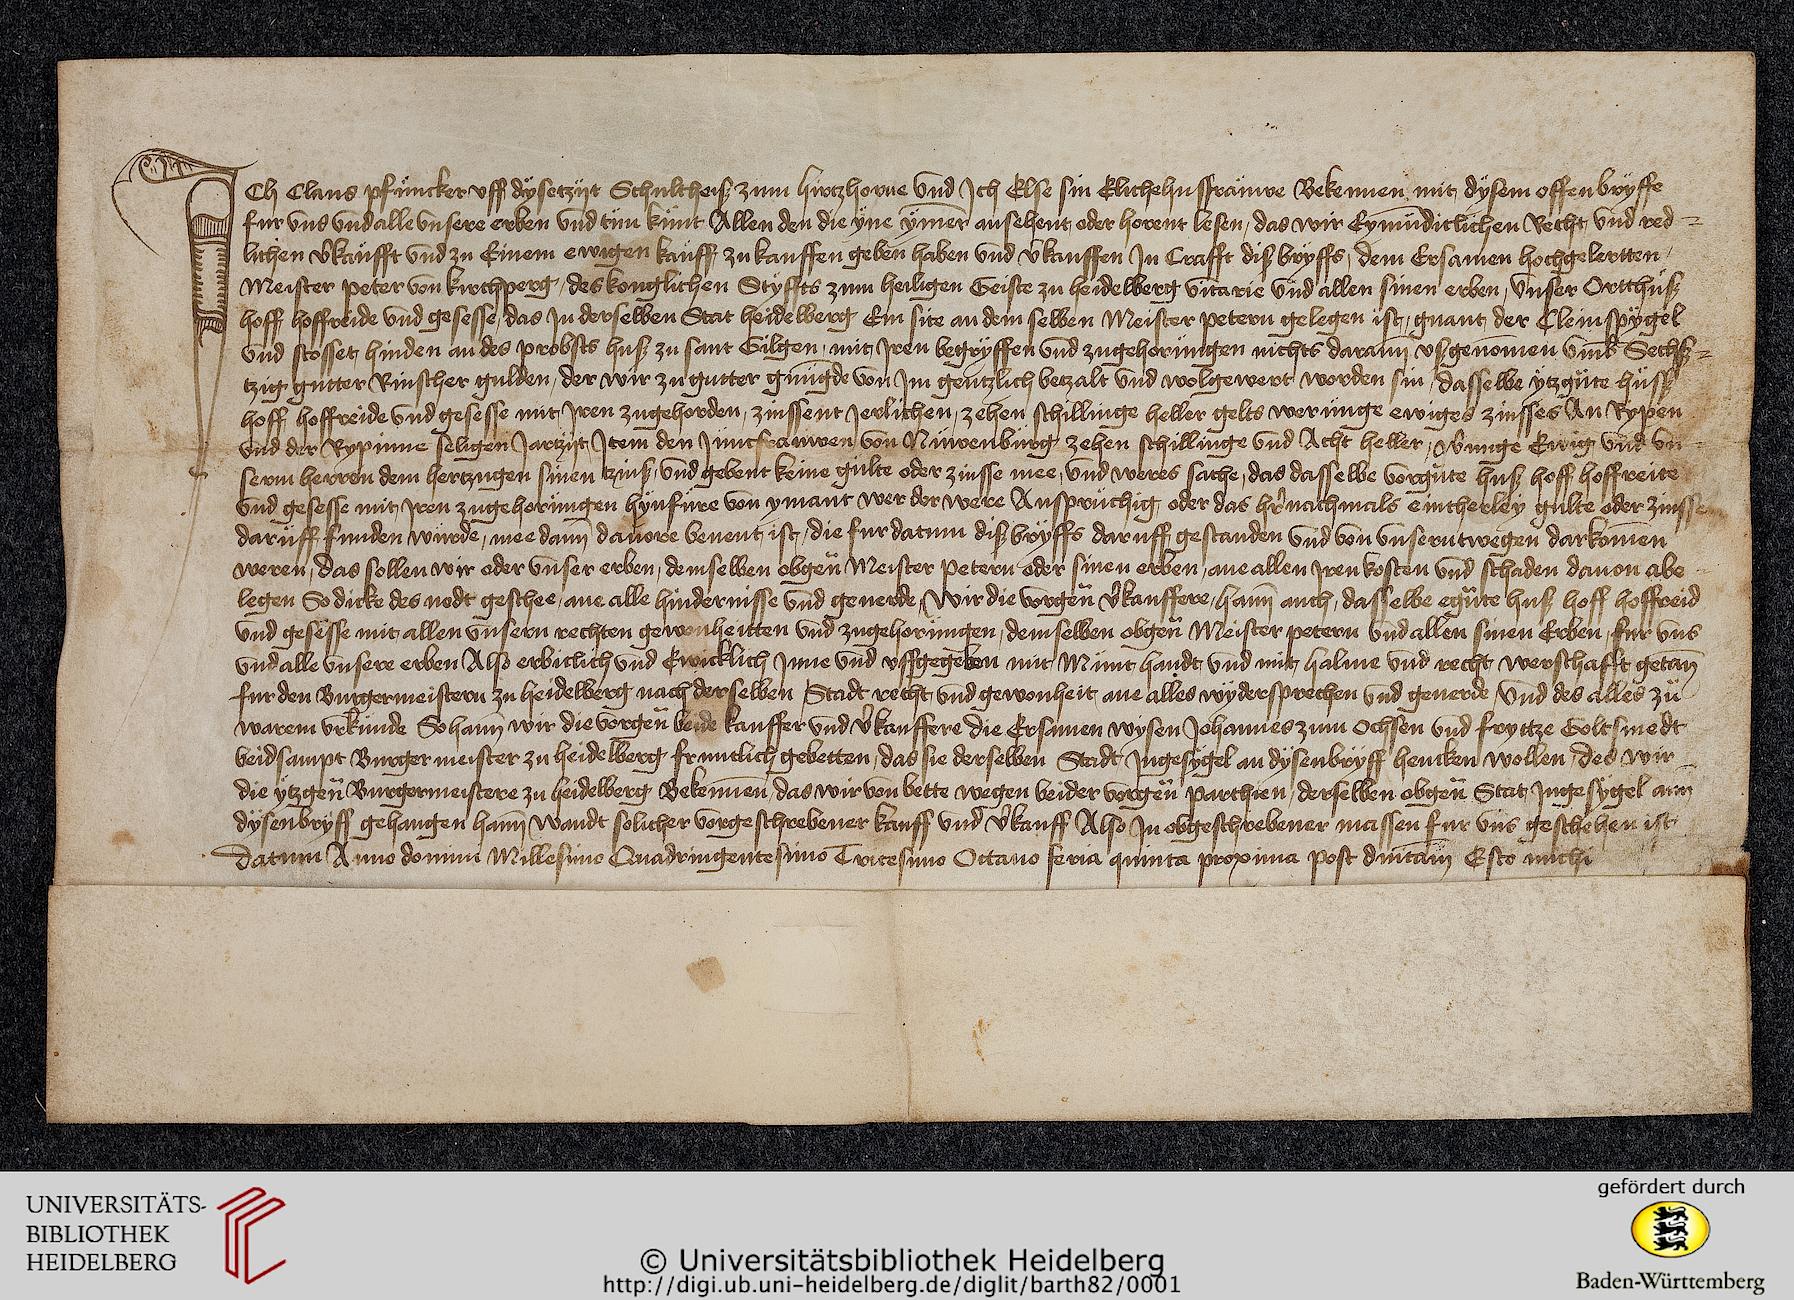 Ich Clans pfuncker uff dysetzijt Schultheiß zum hirtzhorne Und Ich Else sin Elichehussfrauwe Bekennen mit dysem offen bryffe
fur uns und alle unsere erben und tun kunt Allen den die yne ymer ansehent oder horent lesen, das wir Eymudiclichen Recht und red-
lichen v̾kaufft und zu Einem ewigen kauff zu kauffen geben haben und v̾kauffen In Crafft diß bryffs, dem Ersamen hochgelertten,
Meister peter von kirchperg, des konglichen Styffts zum heiligen Geiste zu heidelberg vitarie und allen sinen erben, unser Orthuß
hoff hoffreide und gesesse, das In derselben Stat heidelberg Ein site an dem selben Meister petern gelegen ist, gnant der Cleinspygel
und stosset hinden an des probsts huß zu sant Gilgen, mit Iren begryffen und zugehorungen nichts darann ußgenomen umb Sechß-
tzig gutter Rinscher gulden, der wir zu gutter gnugde von Im gentzlich betzalt und wolgewert worden sin, dasselbe ytzgnte huß
hoff hoffreide und gesesse mit Iren zugehorden, zinssent Jerlichen, zehen schillinge heller gelts werunge ewiges zinsses An Rypen
und der Rypinne seligen Jartzijt Item den Juncfrauwen von Nuwenburg zehen schillinge und Acht heller, werunge Ewig und un-
serm herren dem hertzugen sinen tzinß, und gebent keine gulte oder zinsse mee, und weres sache, das dasselbe vorgnte huß hoff hoffreite
und gesesse mit Iren zugehorungen hynfure von ymant wer der were Anspruchig oder das hernachmals eincherley gulte oder zinssen
daruff funden wurde, mee dann davore benent ist, die fur datum diß bryffs daruff gestanden und von unserntwegen darkomen
weren, das sollen wir oder unser erben, demselben obgen̄ Meister Petern oder sinen erben, ane allen Iren kosten und schaden davon abe
legen So dicke des nodt geschee, ane alle hindernisse und geuerde, Wir die vorgen̄ v̾kauffere, hann auch, dasselbe egnte huß hoff hoffreid
und gesesse mit allen unsern rechten gewonheitten und zugehorungen, demselben obgen̄ Meister petern und allen sinen Erben, fur uns
und alle unsere erben Also erbiclich und Ewicklich Inne und uffgegeben mit Munt handt und mit halme und recht werschafft getan
fur den Burgermeistern zu heidelberg nach derselben Stadt recht und gewonheit ane alles wydersprechen und geuerde, Und des alles zu
warem urkunde So hann wir die vorgen̄ beide kauffer und v̾kauffere die Ersamen wysen Johannes zum Ochsen und fryttze Goltsmedt
beidsampt Burgermeister zu heidelberg fruntlich gebetten, das sie derselben Stadt Ingesygel an dysenbryff hencken wollen, des wir
die ytzgen̄ Burgermeistere zu heidelberg Bekennen, das wir von bette wegen beider vorgen̄ parthien, derselben obgen̄ Stat Ingesygel ann
dysenbryff gehangen hann Wandt solicher vorgeschrebener kauff und v̾kauff Also In obgeschrebener massen fur uns geschehen ist
Datum Anno domini Millesimo Quadringentesimo Tricesimo Octavo feria quinta proxima post dnicam Esto michi
UNIVERSITÄTS-
BIBLIOTHEK
HEIDELBERG
© Universitätsbibliothek Heidelberg
http://digi.ub.uni-heidelberg.de/diglit/barth82/0001
gefördert durch
Baden-Württemberg